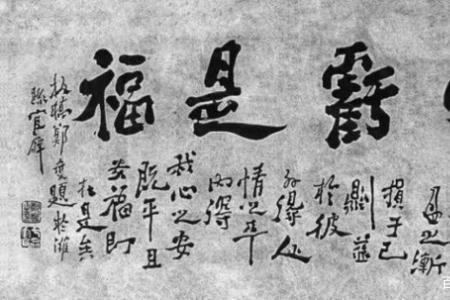 虧是福
盈之漸
損于己
則益
於彼
外得人
情之平
內得
我心之安
既平且
安福即
在是矣
板橋鄭燮題於濰
縣官廨